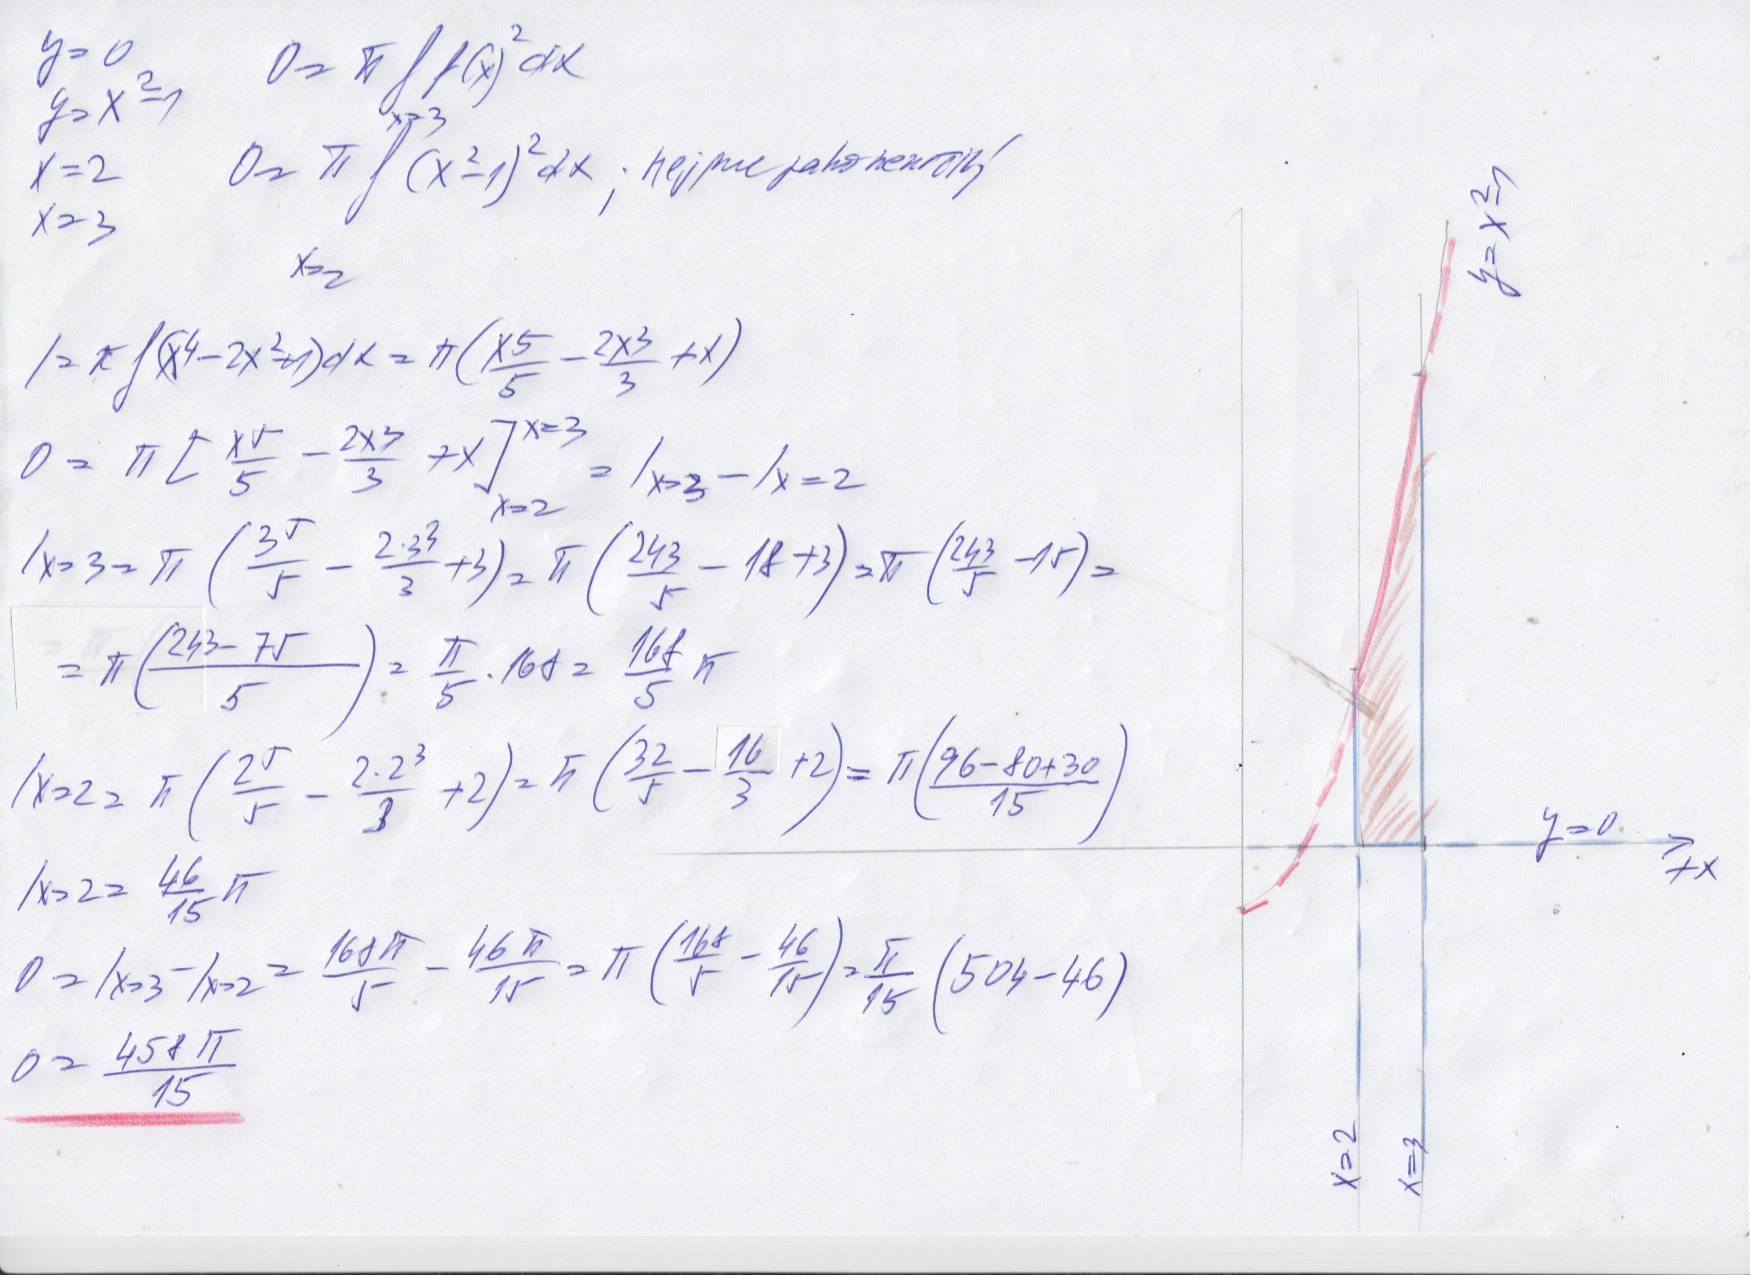 y=0
y=x²-1
x=2
x=3
O= π∫f(x)²dx
x=3
O= π∫(x²-1)²dx ; nejprve jako neurčitý
x=2
I= π∫(x⁴-2x²+1)dx = π(x5/5 - 2x3/3 +x)
O = π[x5/5 - 2x3/3 +x]x=3 x=2 = Ix=3 - Ix=2
Ix=3 = π(3⁵/5 - 2·3³/3 +3) = π(243/5 - 18+3) = π(243/5 -15) =
= π(243-75/5) = π/5 ·168 = 168/5 π
Ix=2 = π(2⁵/5 - 2·2³/3 +2) = π(32/5 - 16/3 +2) = π(96-80+30/15)
Ix=2 = 46/15 π
O = Ix=3 - Ix=2 = 168π/5 - 46π/15 = π(168/5 - 46/15) = π/15 (504-46)
O = 458π/15
y=x²-1
y=0
+x
x=2
x=3